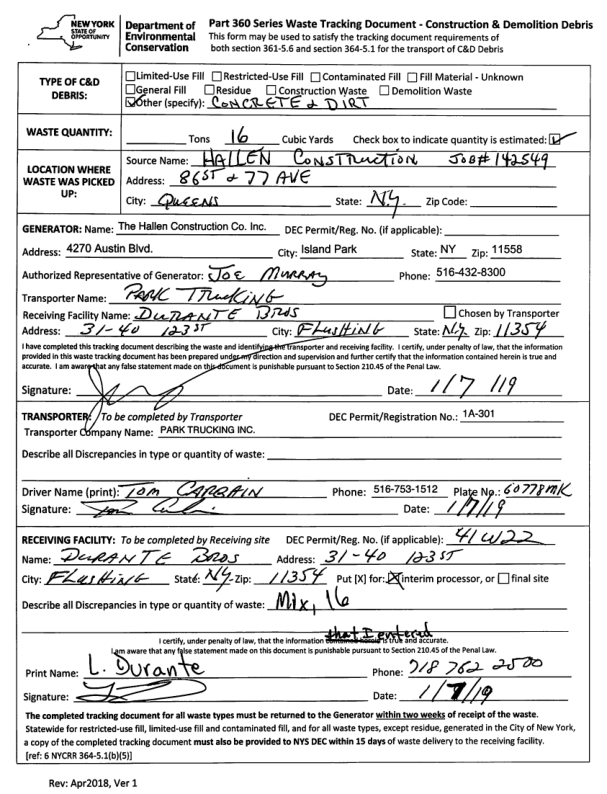 NEW YORK STATE OF OPPORTUNITY
Department of Environmental Conservation
Part 360 Series Waste Tracking Document - Construction & Demolition Debris
This form may be used to satisfy the tracking document requirements of
both section 361-5.6 and section 364-5.1 for the transport of C&D Debris
TYPE OF C&D DEBRIS:
☐Limited-Use Fill ☐Restricted-Use Fill ☐Contaminated Fill ☐Fill Material - Unknown
☐General Fill ☐Residue ☐Construction Waste ☐Demolition Waste
☑Other (specify): CONCRETE & DIRT
WASTE QUANTITY: Tons 16 Cubic Yards Check box to indicate quantity is estimated: ☑
LOCATION WHERE WASTE WAS PICKED UP:
Source Name: HALLEN CONSTRUCTION JOB# 142549
Address: 86ST & 77 AVE
City: QUEENS State: N.Y. Zip Code:
GENERATOR: Name: The Hallen Construction Co. Inc. DEC Permit/Reg. No. (if applicable):
Address: 4270 Austin Blvd. City: Island Park State: NY Zip: 11558
Authorized Representative of Generator: JOE MURRAY Phone: 516-432-8300
Transporter Name: PARK TRUCKING
Receiving Facility Name: DURANTE BROS ☐ Chosen by Transporter
Address: 31-40 123 ST City: FLUSHING State: N.Y. Zip: 11354
I have completed this tracking document describing the waste and identifying the transporter and receiving facility. I certify, under penalty of law, that the information
provided in this waste tracking document has been prepared under my direction and supervision and further certify that the information contained herein is true and
accurate. I am aware that any false statement made on this document is punishable pursuant to Section 210.45 of the Penal Law.
Signature: Date: 1/7/19
TRANSPORTER: To be completed by Transporter DEC Permit/Registration No.: 1A-301
Transporter Company Name: PARK TRUCKING INC.
Describe all Discrepancies in type or quantity of waste:
Driver Name (print): TOM Phone: 516-753-1512 Plate No.: 60778MK
Signature: Date: 1/7/19
RECEIVING FACILITY: To be completed by Receiving site DEC Permit/Reg. No. (if applicable): 41W22
Name: DURANTE BROS Address: 31-40 123 ST
City: FLUSHING State: N.Y. Zip: 11354 Put [X] for: ☒interim processor, or ☐ final site
Describe all Discrepancies in type or quantity of waste: Mix, 16
that I entered
I certify, under penalty of law, that the information contained herein is true and accurate.
I am aware that any false statement made on this document is punishable pursuant to Section 210.45 of the Penal Law.
Print Name: L. Durante Phone: 718 762 2500
Signature: Date: 1/7/19
The completed tracking document for all waste types must be returned to the Generator within two weeks of receipt of the waste.
Statewide for restricted-use fill, limited-use fill and contaminated fill, and for all waste types, except residue, generated in the City of New York,
a copy of the completed tracking document must also be provided to NYS DEC within 15 days of waste delivery to the receiving facility.
[ref: 6 NYCRR 364-5.1(b)(5)]
Rev: Apr2018, Ver 1